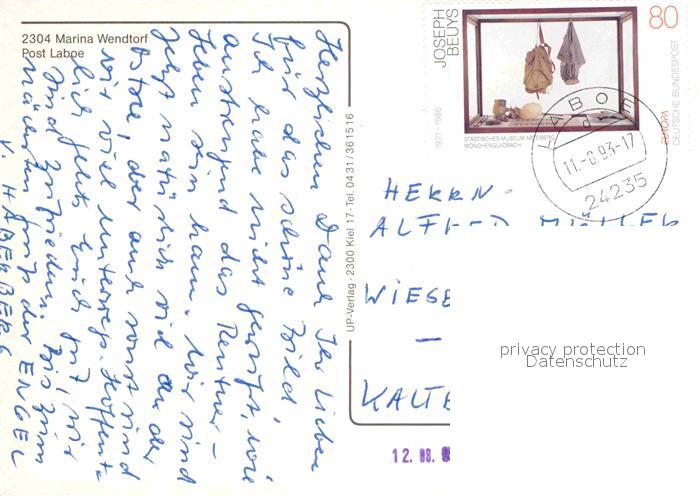 2304 Marina Wendtorf
Post Laboe
Herzlichen Dank Ihr Lieben
für das schöne Bild.
Ich habe nicht gewußt, wie
anstrengend das Rentner-
leben sein kann. Wir sind
jetzt natürlich viel an der
Ostsee, aber auch sonst sind
wir viel unterwegs. Hoffent-
lich geht's Euch gut, wir
sind zufrieden. Bis zum
nächsten Gruß der ENGEL
V. HABERBERG
UP-Verlag · 2300 Kiel 17 · Tel. 04 31 / 36 15 16
JOSEPH
BEUYS
1921-1986
80
STÄDTISCHES MUSEUM ABTEIBERG
MÖNCHENGLADBACH
EUROPA
DEUTSCHE BUNDESPOST
LABOE
11.-8.93-17
24235
HERRN
ALFRED MÜLLER
WIESE
KALTE
12. 08.
privacy protection
Datenschutz